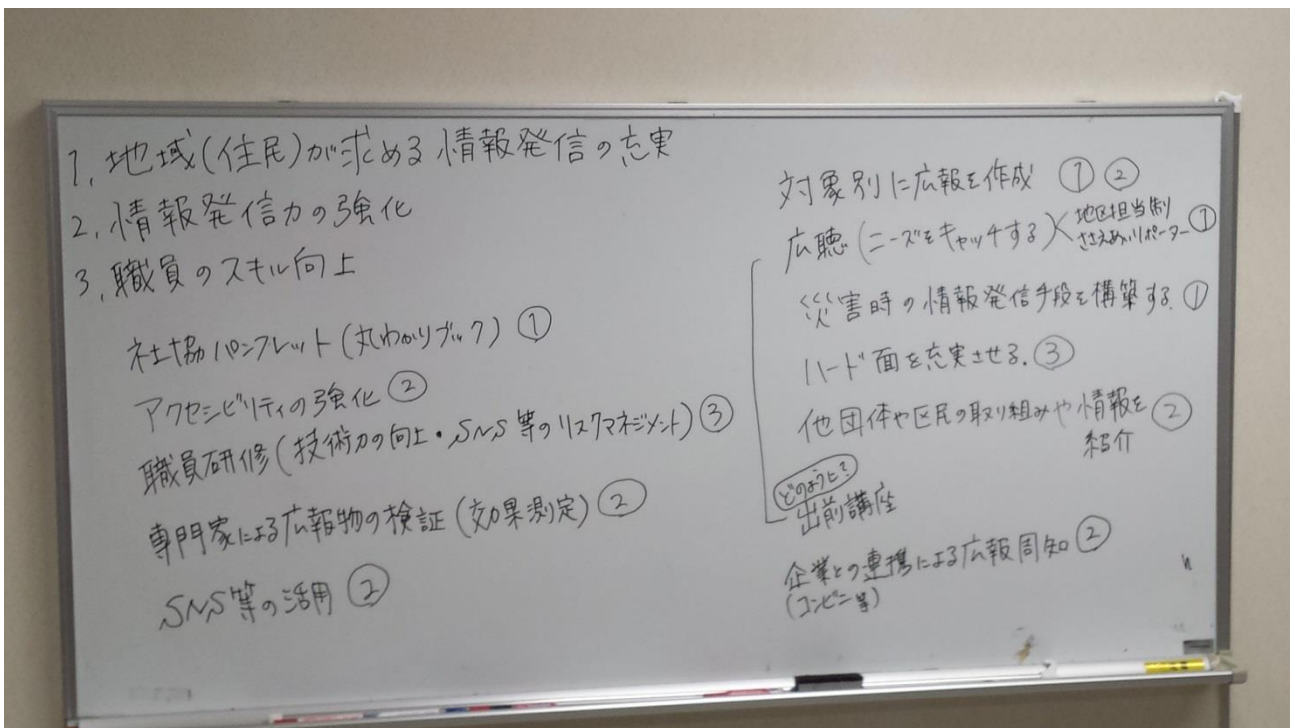 1. 地域(住民)が求める情報発信の充実
2. 情報発信力の強化
3. 職員のスキル向上
社協パンフレット(丸わかりブック) ①
アクセシビリティの強化 ②
職員研修(技術力の向上・SNS等のリスクマネジメント) ③
専門家による広報物の検証(効果測定) ②
SNS等の活用 ②
対象別に広報を作成 ① ②
広聴(ニーズをキャッチする)
地区担当制
ささえあいリポーター ①
災害時の情報発信手段を構築する. ①
ハード面を充実させる. ③
他団体や区民の取り組みや情報を ②
紹介
どのように?
出前講座
企業との連携による広報周知 ②
(コンビニ等)